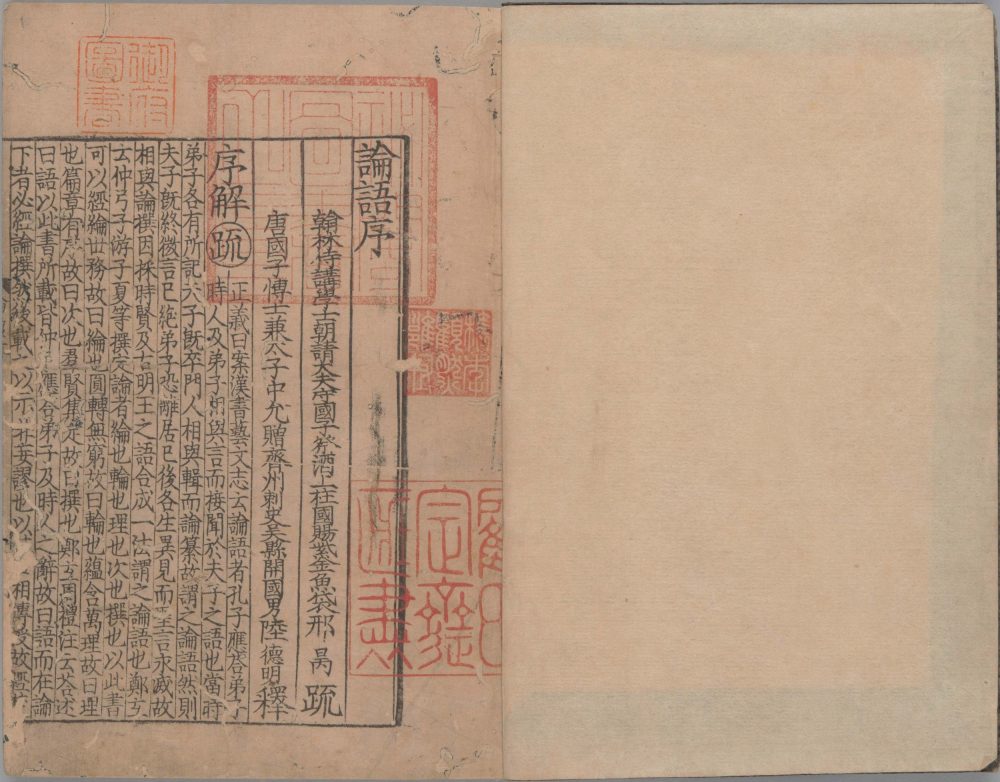 論語序
翰林侍講學士朝請大夫守國子祭酒上柱國賜紫金魚袋邢昺疏
唐國子博士兼太子中允贈齊州刺史吳縣開國男陸德明釋
序解疏正義曰案漢書藝文志云論語者孔子應荅弟子
時人及弟子相與言而接聞於夫子之語也當時
弟子各有所記夫子旣卒門人相與輯而論纂故謂之論語然則
夫子旣終微言已絕弟子恐離居已後各生異見而聖言永滅故
相與論撰因採時賢及古明王之語合成一法謂之論語也鄭玄
云仲弓子游子夏等撰定論者綸也輪也理也次也撰也以此書
可以經綸世務故曰綸也圓轉無窮故曰輪也蘊含萬理故曰理
也篇章有序故曰次也羣賢集定故曰撰也鄭玄周禮注云荅述
曰語以此書所載皆仲尼應荅弟子及時人之辭故曰語而在論
下者必經論撰然後載之以示非妄謬也以 相傳受故
御府圖書